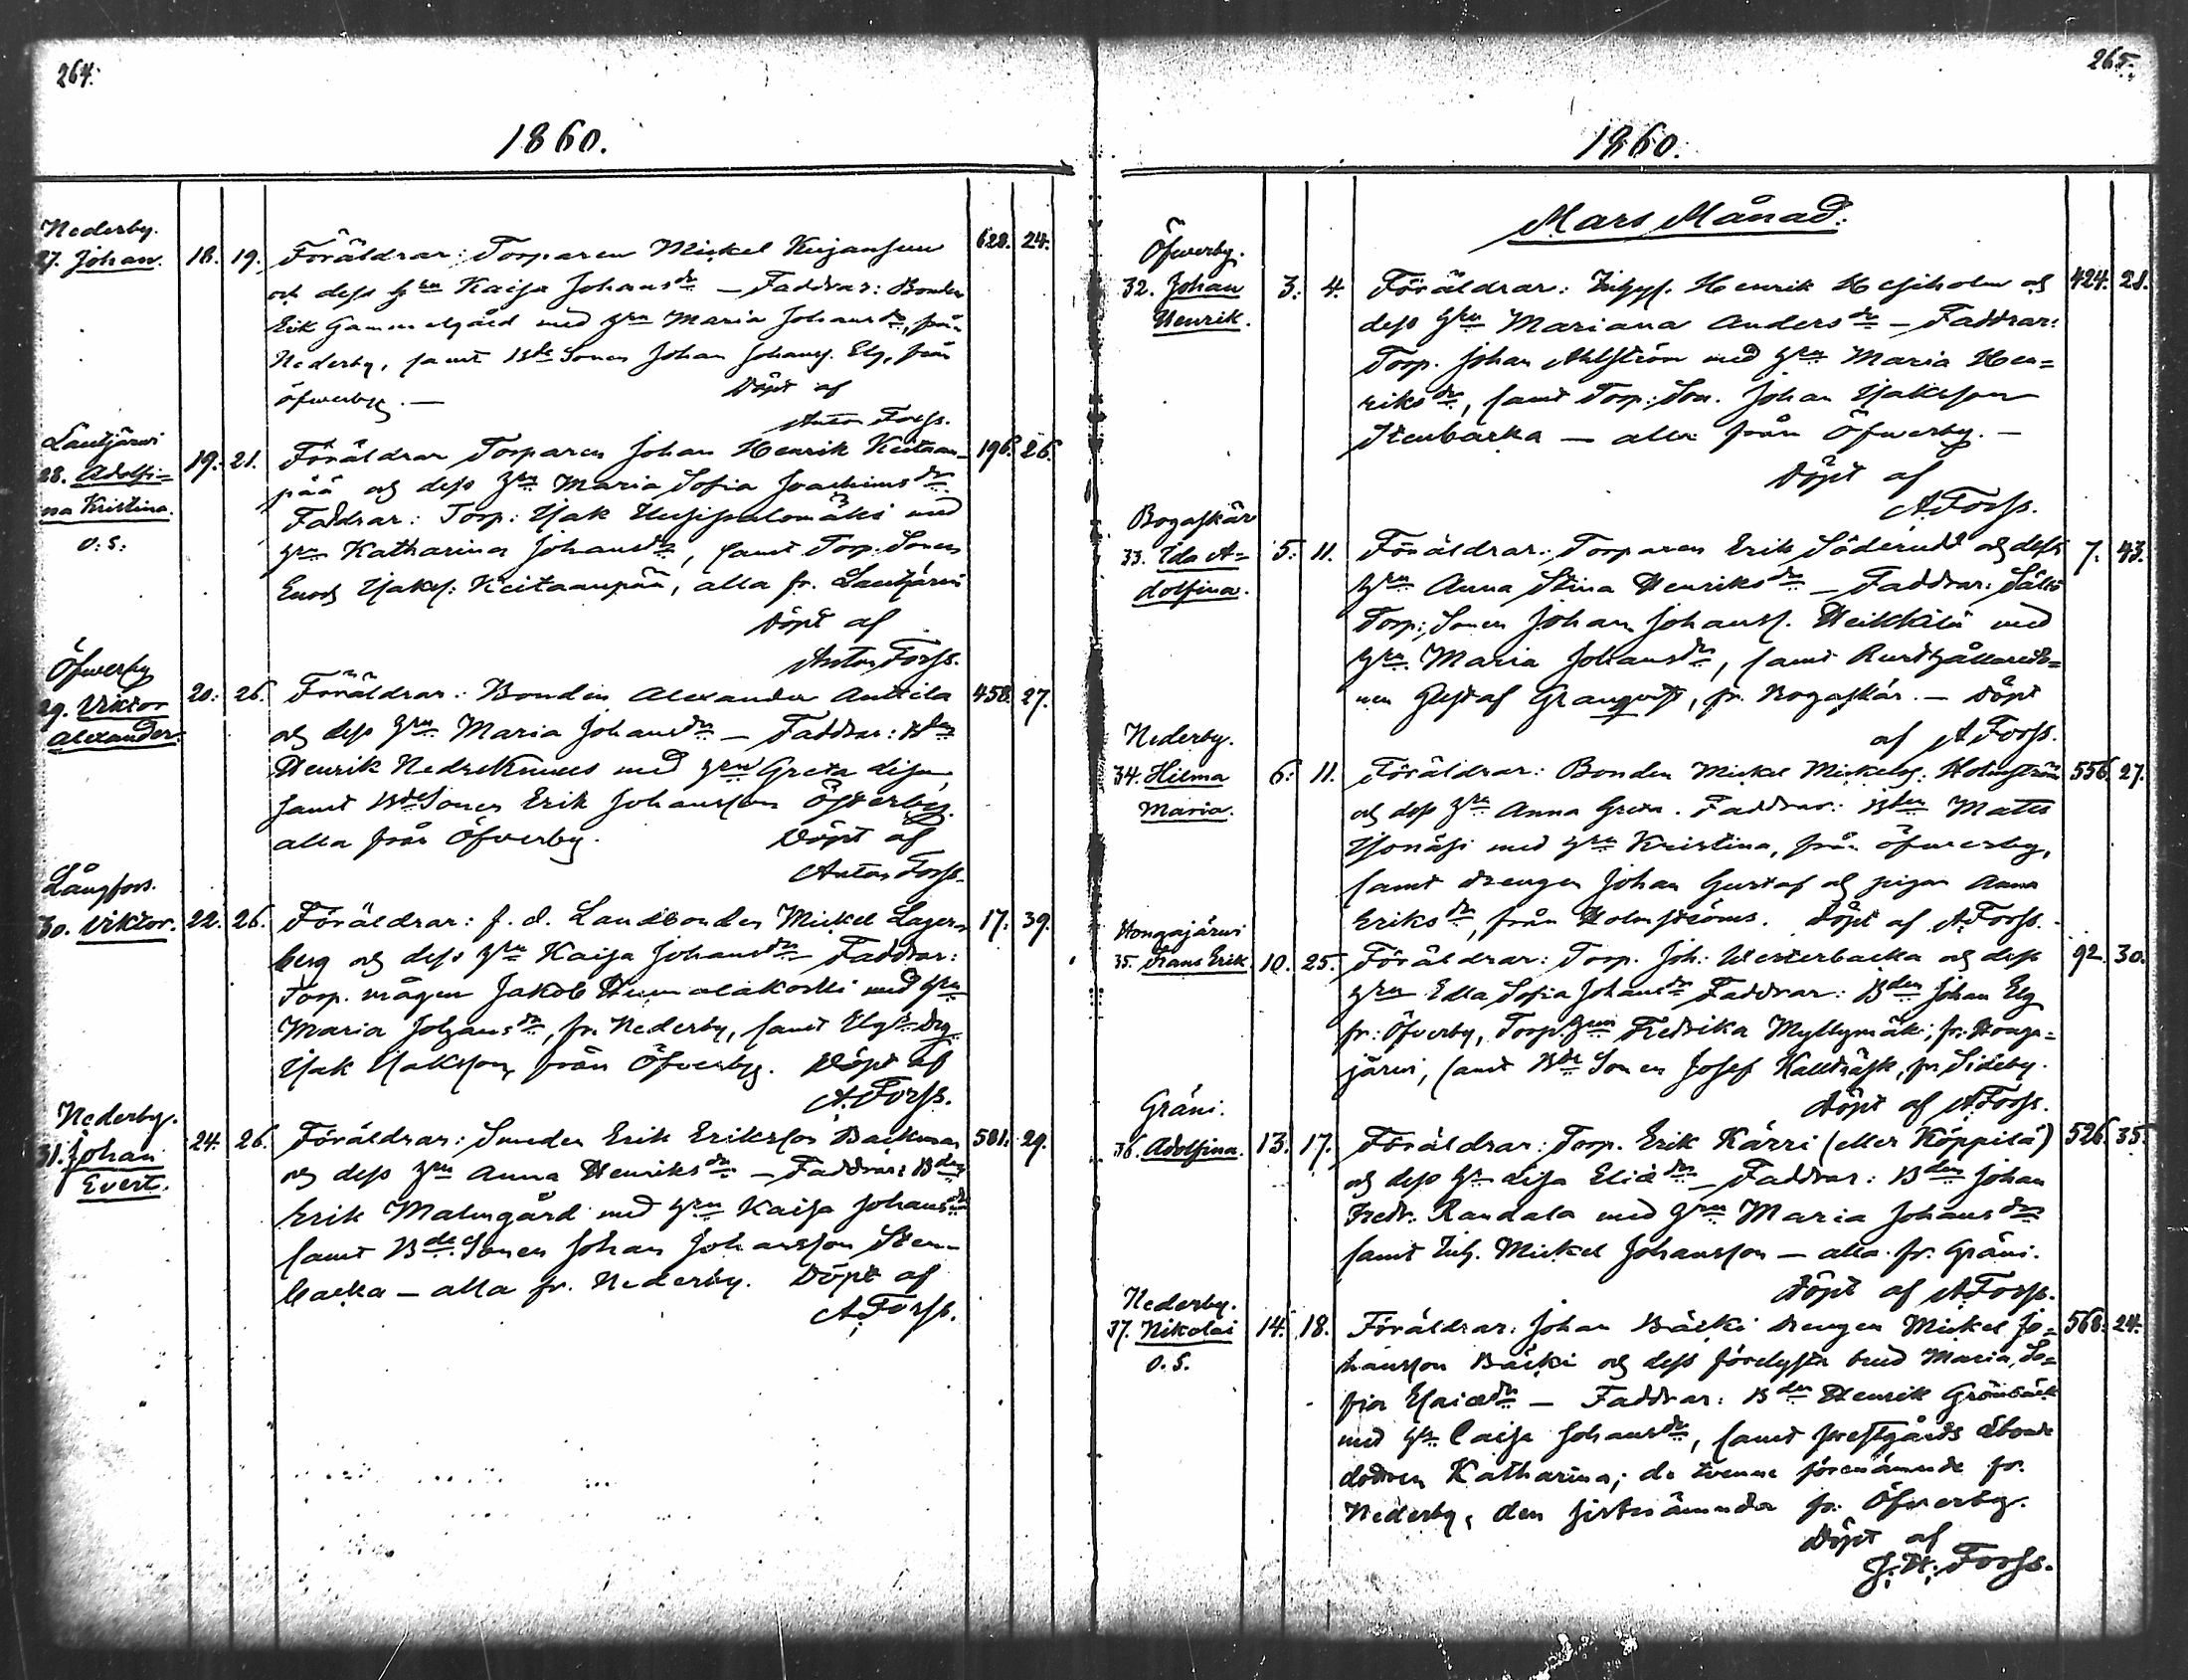 264.
1860.
Nederby.
27. Johan. 18. 19. Föräldrar: Torparen Mickel 628. 24.
och dess h:ru Kaisa Johansdr — Faddrar: Bonden
Erik Gammelgård med hru Maria Johansdr, från
Nederby, samt Bde Sonen Johan Johanss. Elg, från
Öfverby. — Döpt af
Anton Forss.
Lautjärvi
28. Adolfi= 19. 21. Föräldrar Torparen Johan Henrik Keitaan= 196. 26.
na Kristina. pää och dess hru Maria Sofia Joachimsdr
Faddrar: Torp: Isak med
o. s. hru Katharina Johansdr, samt Torp. Sonen
Enoch Isaks. Keitaanpää, alla fr. Lautjärvi
Döpt af
Anton Forss.
Öfverby
29. Viktor 20. 26. Föräldrar: Bonden Alexander Anttila 458. 27.
Alexander. och dess hru Maria Johansdr — Faddrar: Bden
Henrik med hru Greta Lisa
samt Bde Sonen Erik Johansson Österby.
alla från Öfverby. Döpt af
Anton Forss.
Långfors.
30. Viktor. 22. 26. Föräldrar: f. d. Landbonden Mickel Lager= 17. 39.
berg och dess hru Kaisa Johansdr Faddrar:
Torp. mågen Jakob med hru
Maria Johansdr, fr. Nederby, samt drg
Isak Isaksson, från Öfverby. Döpt af
A. Forss.
Nederby.
31. Johan 24. 26. Föräldrar: Smeden Erik Eriksson Backman 501. 29.
Evert. och dess hru Anna Henriksdr — Faddrar: Bden
Erik Malmgård med hru Kaisa Johansdr
samt Bde Sonen Johan Johansson Sten=
backa — alla fr. Nederby. Döpt af
A. Forss.
265.
1860.
Mars Månad.
Öfverby.
32. Johan 3. 4. Föräldrar: Inhys. Henrik Hesiholm och 424. 28.
Henrik. dess hru Mariana Andersdr — Faddrar:
Torp. Johan Ahlström med hru Maria Hen=
riksdr, samt Torp: Son. Johan Isaksson
Stenbacka — alla från Öfverby. —
Döpt af
A. Forss.
Bogaskär
33. Ida A= 5. 11. Föräldrar: Torparen Erik Söderudd och dess 7. 43.
dolfina. hru Anna Stina Henriksdr — Faddrar:
Torp: Sonen Johan Johanss. Heikkilä med
hru Maria Johansdr, samt
nen Gustaf Granqvist, fr. Bogaskär. — Döpt
af A Forss.
Nederby.
34. Hilma 6. 11. Föräldrar: Bonden Mickel Mickelss. Holmström 556. 27.
Maria. och dess hru Anna Greta. Faddrar: Bden Matts
med hru Kristina, från Öfverby,
samt drengen Johan Gustaf och pigan Anna
Eriksdr, från Holmströms. Döpt af A. Forss.
Hongajärvi
35. Frans Erik. 10. 25. Föräldrar: Torp. Joh: Westerbacka och dess 92. 30.
hru Edla Sofia Johansdr Faddrar: Bden Johan Elg
fr: Öfverby, Torp. hru Fredrika Myllymäki, fr. Honga=
järvi, samt Bde Sonen Josef Kallträsk, fr. Sideby.
Döpt af A. Forss.
Gräni.
36. Adolfina. 13. 17. Föräldrar: Torp. Erik Kärri (eller Köppilä) 526. 35.
och dess hru Lisa Eliædr — Faddrar: Bden Johan
Fredr. Randala med hru Maria Johansdr
samt Inh. Mickel Johansson — alla fr. Gräni.
Döpt af A. Forss.
Nederby.
37. Nikolai 14. 18. Föräldrar: Johan Bäcki drengen Mickel Jo= 568. 24.
o. s. hansson Bäcki och dess förelysta brud Maria So=
fia Esaiædr — Faddrar: Bden Henrik Grönback
med hru Caisa Johansdr, samt prestgårds Lbonde
dottren Katharina; de tvenne förenämnde fr.
Nederby, den sistnämnda fr. Öfverby.
Döpt af
J. H. Forss.